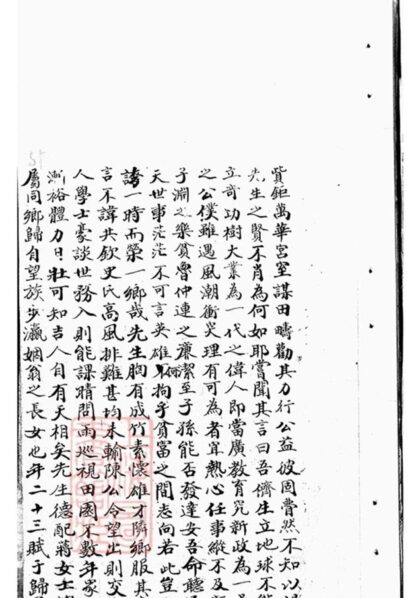 貲鉅萬華宮室謀田疇勸其力行公益彼固瞢然不知以
先生之賢不肖為何如耶嘗聞其言曰吾儕生立地球不能
立奇功樹大業為一代之偉人即當廣教育究新政為一
之公僕雖遇風潮衝突理有可為者宜熱心任事縱不及
子淵之樂貧魯仲連之廉潔至子孫能否發達安吾命聽
天世事茫茫不可言英雄不拘乎貧富之間志向若此豈
誇一時而榮一鄉哉先生胸有成竹素懷雄才隣鄉服其
言不諱共欽史氏高風排難甚均未輸陳公令望出則交
人學士豪談世務入則能課晴問雨巡視田園不數年家
漸裕體力日壯可知吉人自有天相矣先生德配蔣女士
屬同鄉歸自望族步瀛姻翁之長女也年二十三賦于歸